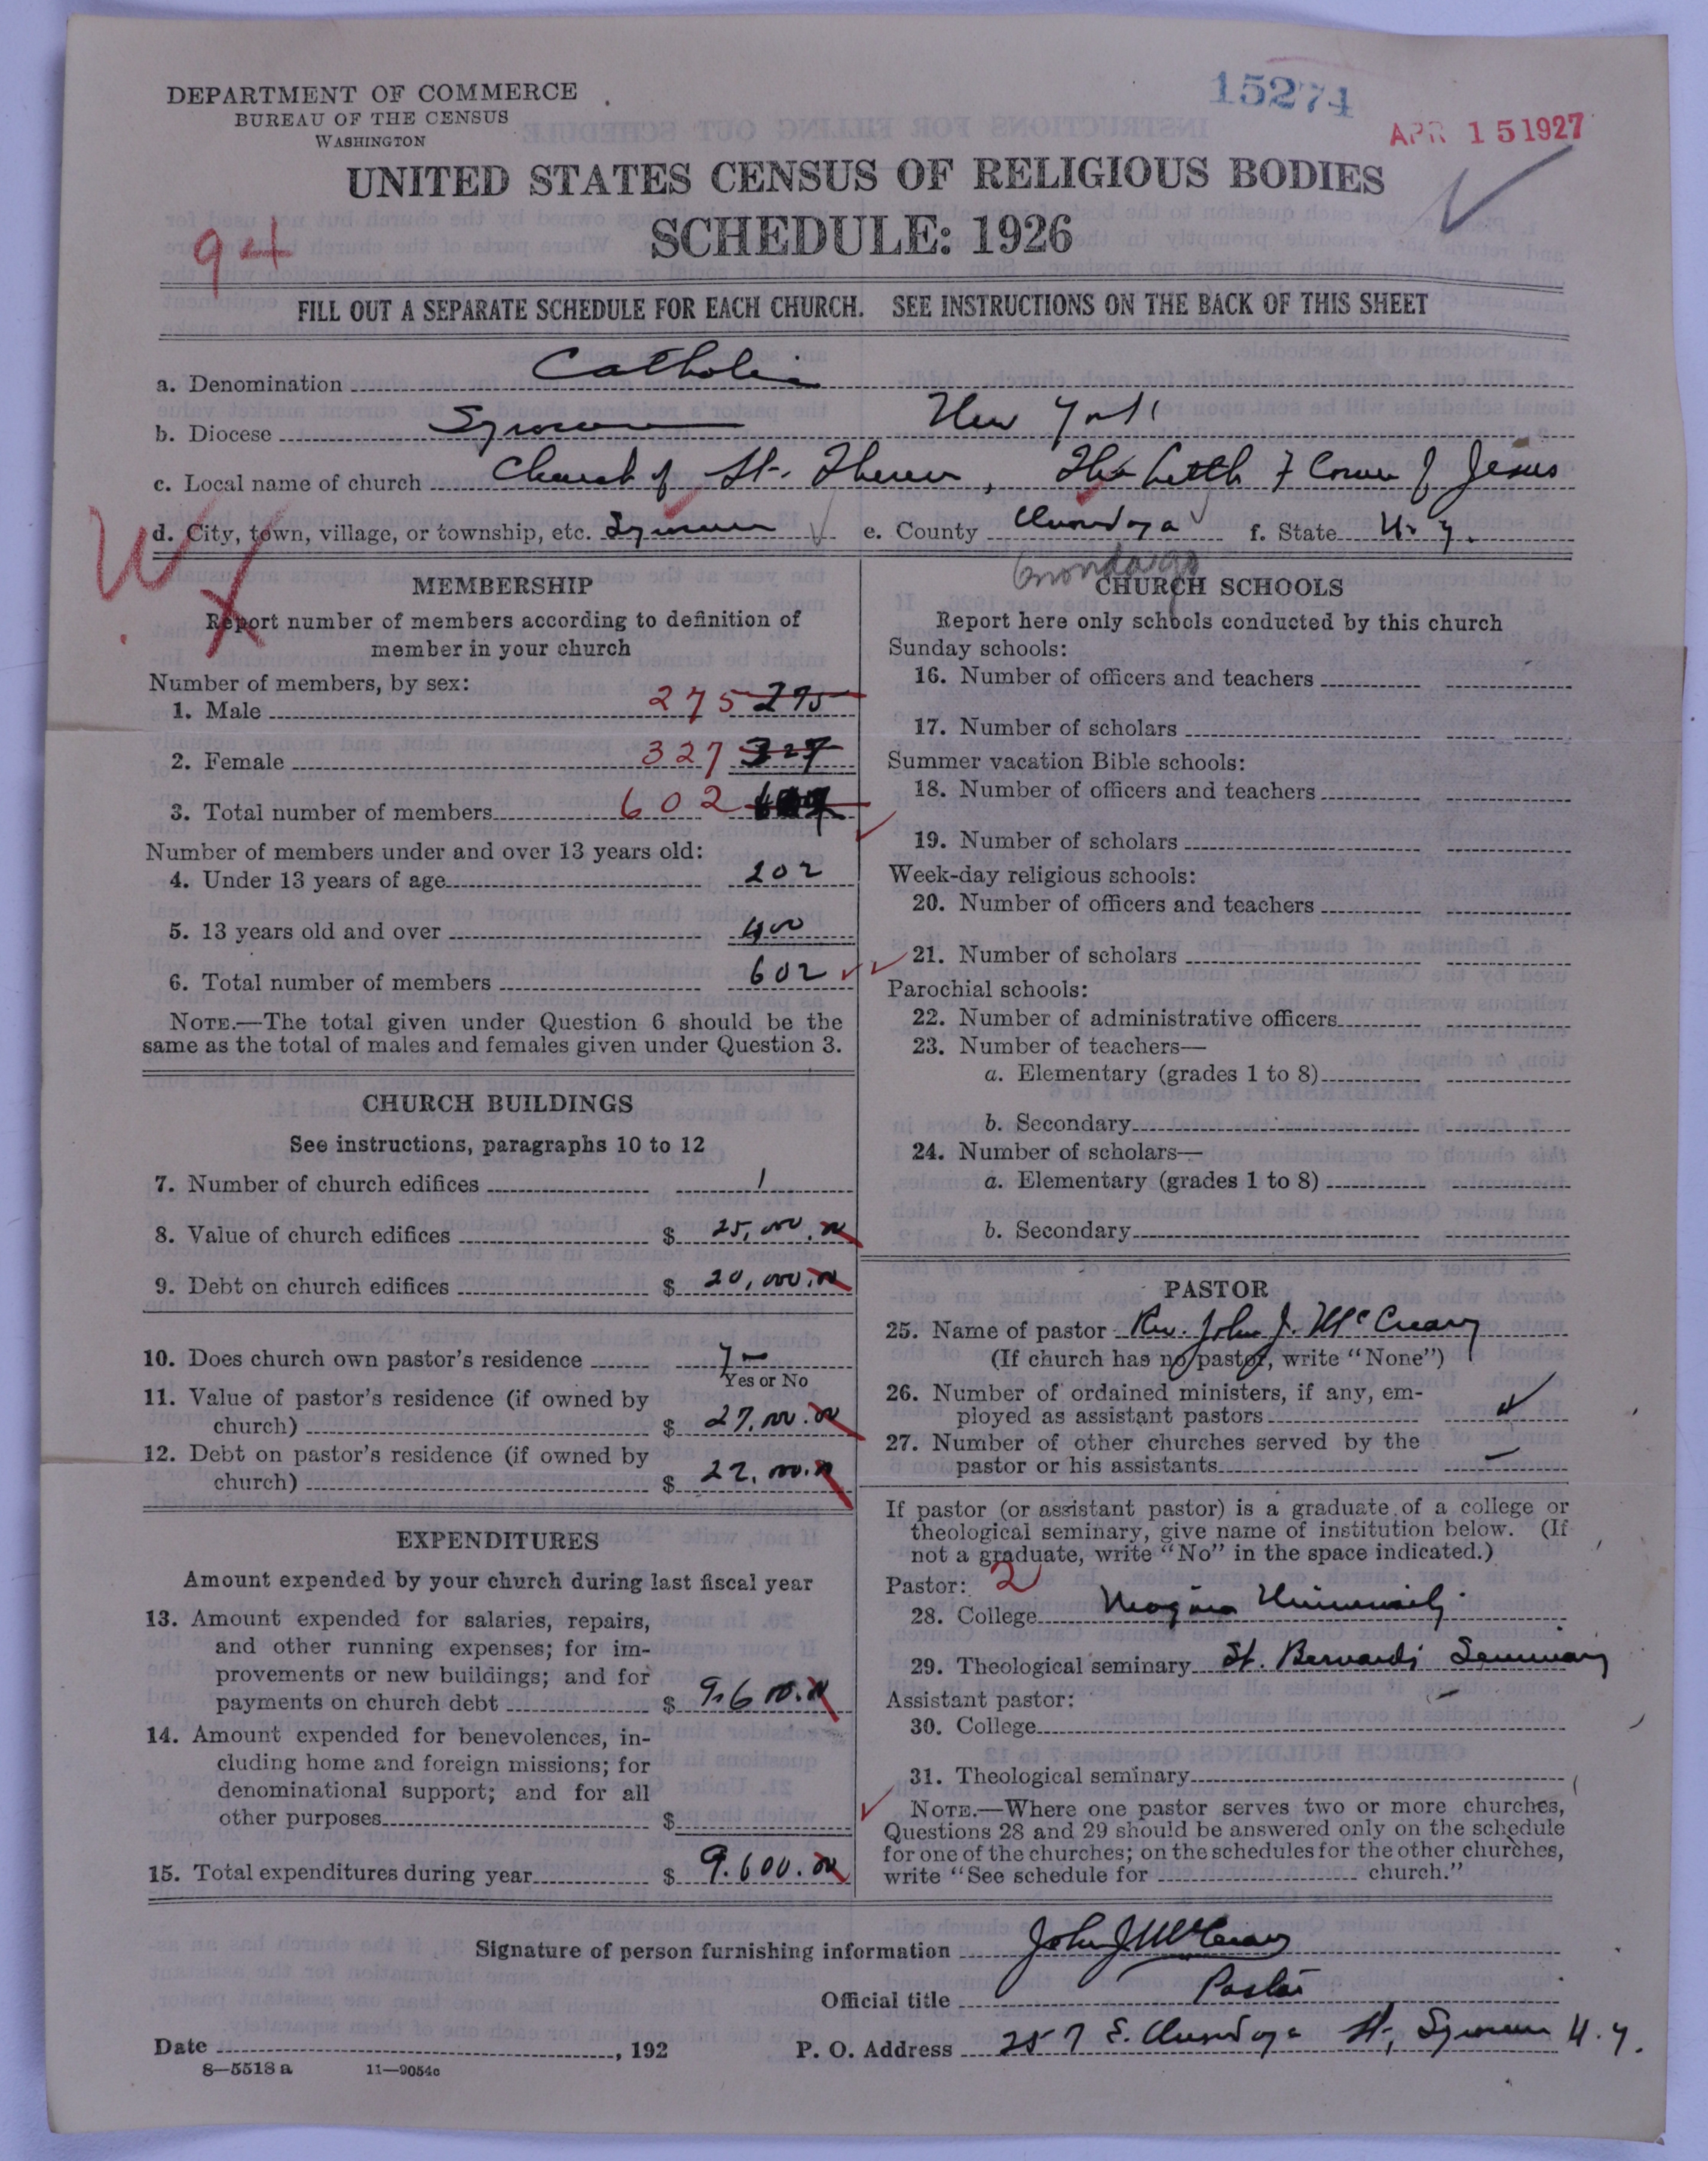 15274
APR 15 1927
DEPARTMENT OF COMMERCE
BUREAU OF THE CENSUS
WASHINGTON
UNITED STATES CENSUS OF RELIGIOUS BODIES
SCHEDULE: 1926
94
FILL OUT A SEPARATE SCHEDULE FOR EACH CHURCH. SEE INSTRUCTIONS ON THE BACK OF THIS SHEET
a. Denomination Catholic
b. Diocese Syracuse New York
c. Local name of church Church of St. Therese, The Little Flower of Jesus
d. City, town, village, or township, etc. Syracuse e. County Onondaga f. State N. Y.
Onondaga
MEMBERSHIP
Report number of members according to definition of
member in your church
Number of members, by sex:
1. Male 275 275
2. Female 327 327
3. Total number of members 602
Number of members under and over 13 years old:
4. Under 13 years of age 202
5. 13 years old and over 400
6. Total number of members 602
NOTE.—The total given under Question 6 should be the
same as the total of males and females given under Question 3.
CHURCH BUILDINGS
See instructions, paragraphs 10 to 12
7. Number of church edifices 1
8. Value of church edifices $ 25,000.00
9. Debt on church edifices $ 20,000.00
10. Does church own pastor's residence
Yes or No
11. Value of pastor's residence (if owned by
church) $ 27,000.00
12. Debt on pastor's residence (if owned by
church) $ 22,000.00
EXPENDITURES
Amount expended by your church during last fiscal year
13. Amount expended for salaries, repairs,
and other running expenses; for im-
provements or new buildings; and for
payments on church debt $ 9,600.00
14. Amount expended for benevolences, in-
cluding home and foreign missions; for
denominational support; and for all
other purposes $
15. Total expenditures during year $ 9.600.00
CHURCH SCHOOLS
Report here only schools conducted by this church
Sunday schools:
16. Number of officers and teachers
17. Number of scholars
Summer vacation Bible schools:
18. Number of officers and teachers
19. Number of scholars
Week-day religious schools:
20. Number of officers and teachers
21. Number of scholars
Parochial schools:
22. Number of administrative officers
23. Number of teachers—
a. Elementary (grades 1 to 8)
b. Secondary
24. Number of scholars—
a. Elementary (grades 1 to 8)
b. Secondary
PASTOR
25. Name of pastor Rev. John J. McCreary
(If church has no pastor, write "None")
26. Number of ordained ministers, if any, em-
ployed as assistant pastors
27. Number of other churches served by the
pastor or his assistants —
If pastor (or assistant pastor) is a graduate of a college or
theological seminary, give name of institution below. (If
not a graduate, write "No" in the space indicated.)
Pastor: 2
28. College Niagara University
29. Theological seminary St. Bernard's Seminary
Assistant pastor: —
30. College
31. Theological seminary
NOTE.—Where one pastor serves two or more churches,
Questions 28 and 29 should be answered only on the schedule
for one of the churches; on the schedules for the other churches,
write "See schedule for church."
Signature of person furnishing information John J McCreary
Official title Pastor
Date , 192 P. O. Address 257 E. Onondaga St, Syracuse N. Y.
8—5518 a 11—9054c